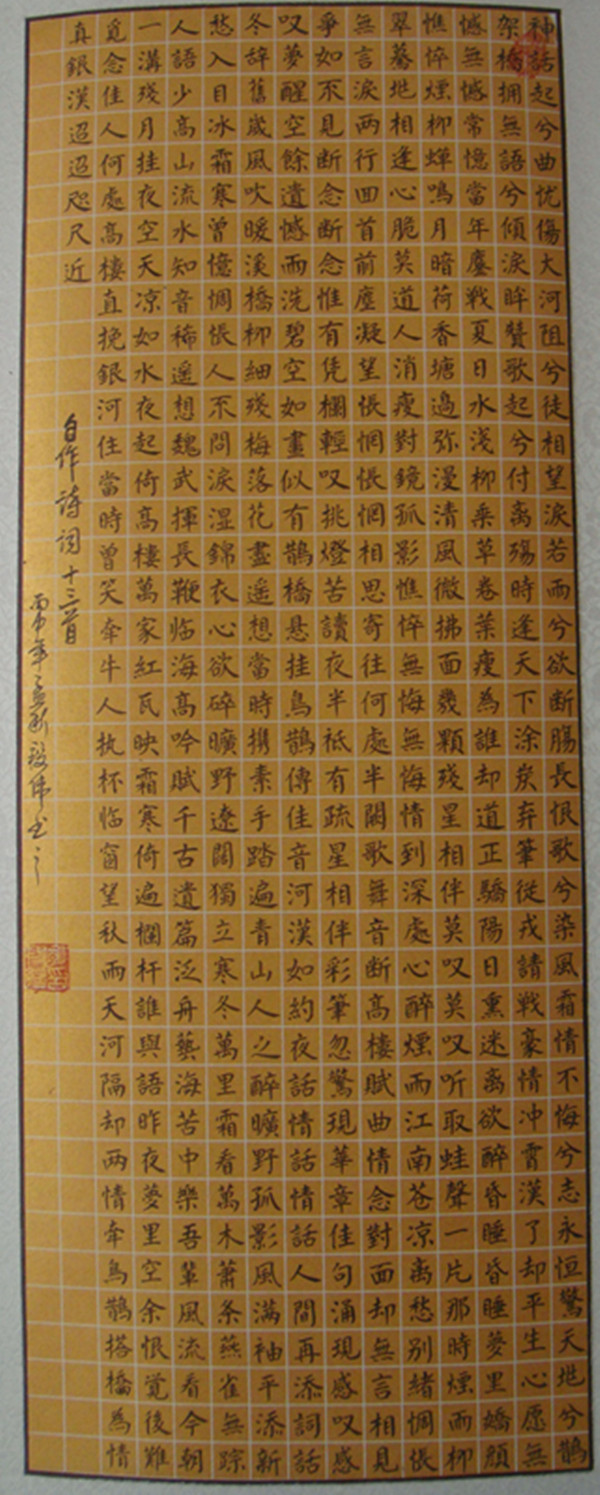 神話起兮曲忧傷大河阻兮徒相望淚若雨兮欲断腸長恨歌兮染風霜情不悔兮志永恒驚天地兮鵲
架橋拥無語兮傾淚眸贊歌起兮付离殤時逢天下涂炭弃筆從戎請戰豪情冲霄漢了却平生心愿無
憾無憾常憶當年鏖戰夏日水浅柳垂草卷葉瘦為誰却道正驕陽日熏迷离欲醉昏睡昏睡夢里嬌顔
憔悴煙柳蟬鳴月暗荷香塘邊弥漫清風微拂面幾顆殘星相伴莫叹莫叹听取蛙聲一片那時煙雨柳
翠驀地相逢心脆莫道人消瘦對鏡孤影憔悴無悔無悔情到深處心醉煙雨江南苍凉离愁别緒惆悵
無言淚两行回首前塵凝望悵惘悵惘相思寄往何處半闕歌舞音断高樓賦曲情念對面却無言相見
爭如不見断念断念惟有凭欄輕叹挑燈苦讀夜半祗有疏星相伴彩筆忽驚現華章佳句涌現感叹感
叹夢醒空餘遺憾雨洗碧空如畫似有鵲橋悬挂鳥鵲傳佳音河漢如約夜話情話情話人間再添詞話
冬辞舊歲風吹暖溪橋柳細殘梅落花盡遥想當時携素手踏遍青山人之醉曠野孤影風滿袖平添新
愁入目冰霜寒曾憶惆悵人不問淚湿錦衣心欲碎曠野遼闊獨立寒冬萬里霜看萬木蕭条燕雀無踪
人語少高山流水知音稀遥想魏武揮長鞭临海高吟賦千古遺篇泛舟藝海苦中樂吾輩風流看今朝
一溝殘月挂夜空天凉如水夜起倚高樓萬家紅瓦映霜寒倚遍欄杆誰與語昨夜夢里空余恨覺後難
覓念佳人何處高樓直挽銀河住當時曾笑牵牛人执杯临窗望秋雨天河隔却两情牵鳥鵲搭橋為情
真銀漢迢迢咫尺近
自作詩詞十三首
丙申年